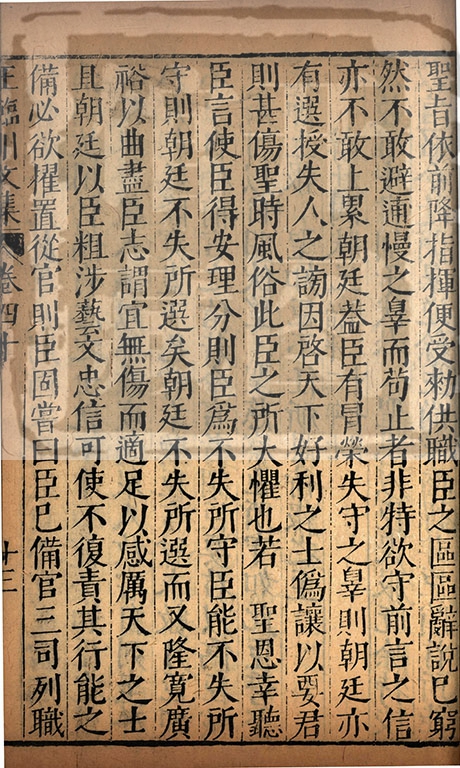 聖旨依前降指揮便受勑供職臣之區區辭說已窮
然不敢避逋慢之辠而苟止者非特欲守前言之信
亦不敢上累朝廷葢臣有冒榮失守之辠則朝廷亦
有選授失人之謗因啓天下好利之士僞讓以要君
則甚傷聖時風俗此臣之所大懼也若　聖恩幸聽
臣言使臣得安理分則臣爲不失所守臣能不失所
守則朝廷不失所選矣朝廷不失所選而又隆寬廣
裕以曲盡臣志謂宜無傷而適足以感厲天下之士
且朝廷以臣粗涉藝文忠信可使不復責其行能之
備必欲擢置從官則臣固嘗曰臣已備官三司列職
王臨川文集　卷四十　十二